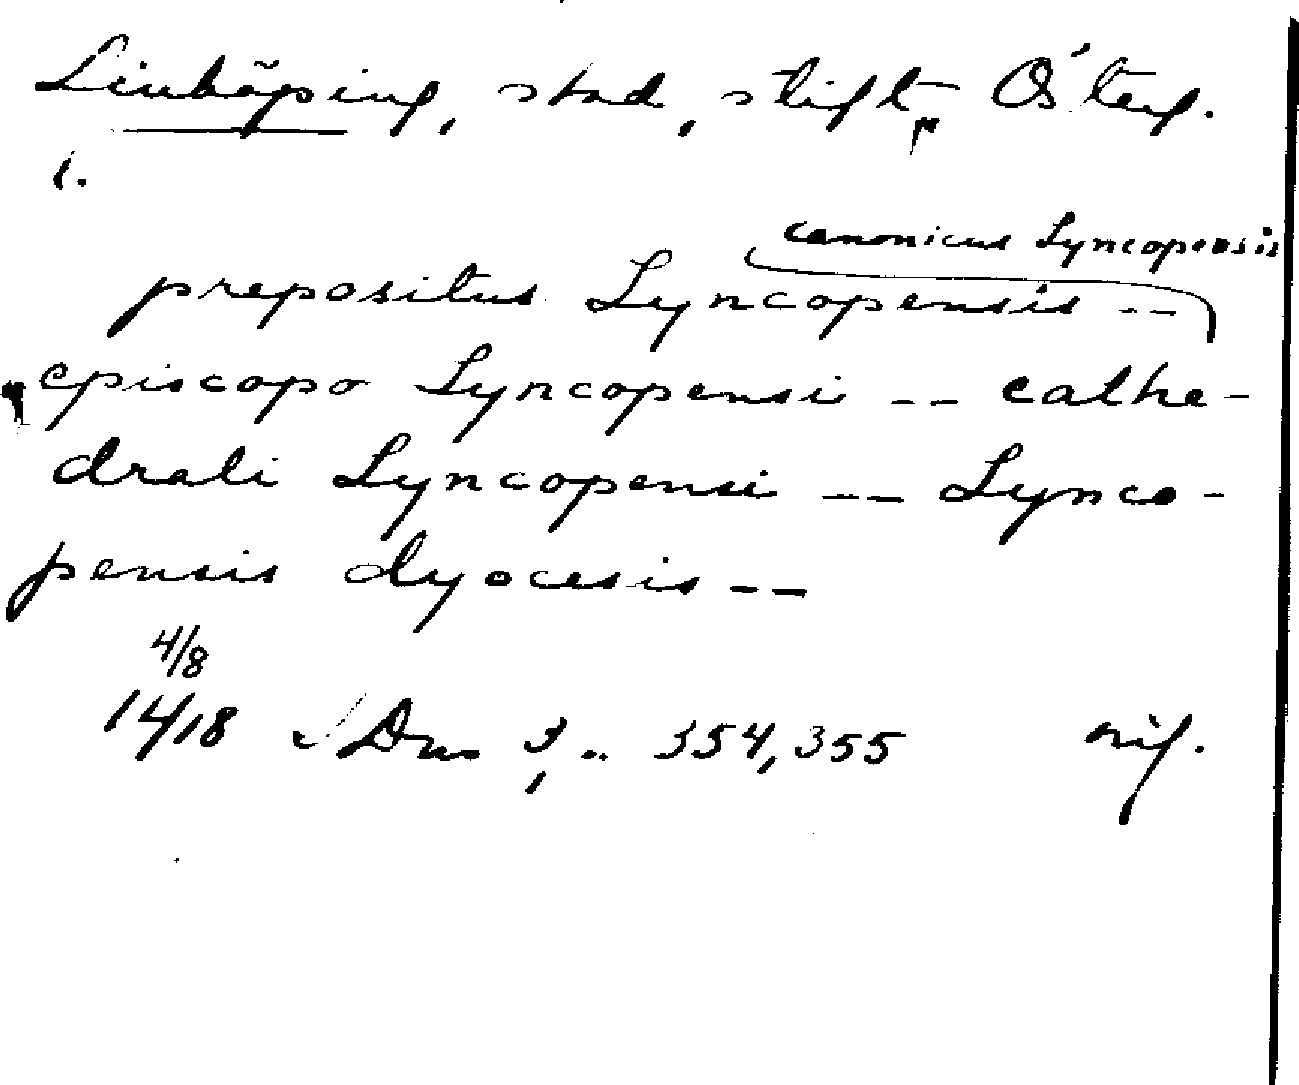 Linköping, stad, stift, Österg.
1.
canonicus Lyncopensis
prepositus Lyncopensis --
episcopo Lyncopensi -- cathe-
drali Lyncopensi -- Lynco-
pensis dyocesis --
4/8
1418 Dns 3, .. 354, 355 orig.